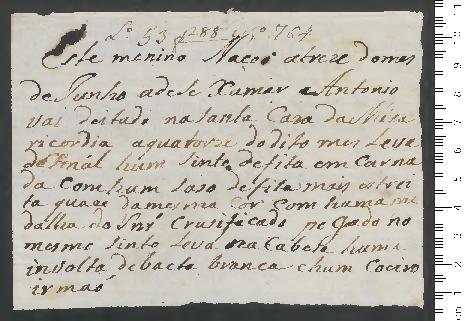 Lº 53 f 288 Nº 764
Este menino Naceo atreze domes
de Junho adese Xamar Antonio
vai deitado na Santa Caza da Mize
ricordia aquatorze do dito mes Leva
de Sinál hum Sinto defita em Carna
da Com hum Laso de fita mais estrei
ta quaze da mesma Cor Com huma me
dalha do Snr Crusificado pegado no
mesmo Sinto Leva na Cabeſa huma
involta de baeta branca e hum Coeiro
irmão